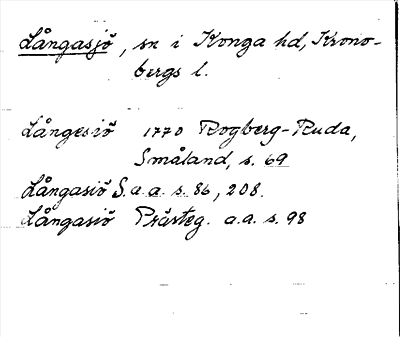 Långasjö, sn i Konga hd, Krono-
bergs l.
Långesiö 1770 Rogberg-Ruda,
Småland, s. 69
Långasiö S. a.a. s. 86, 208.
Långasiö Prästeg. a.a. s. 98